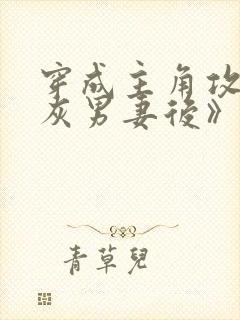 穿成主角攻
灰男妻後》
青草兒